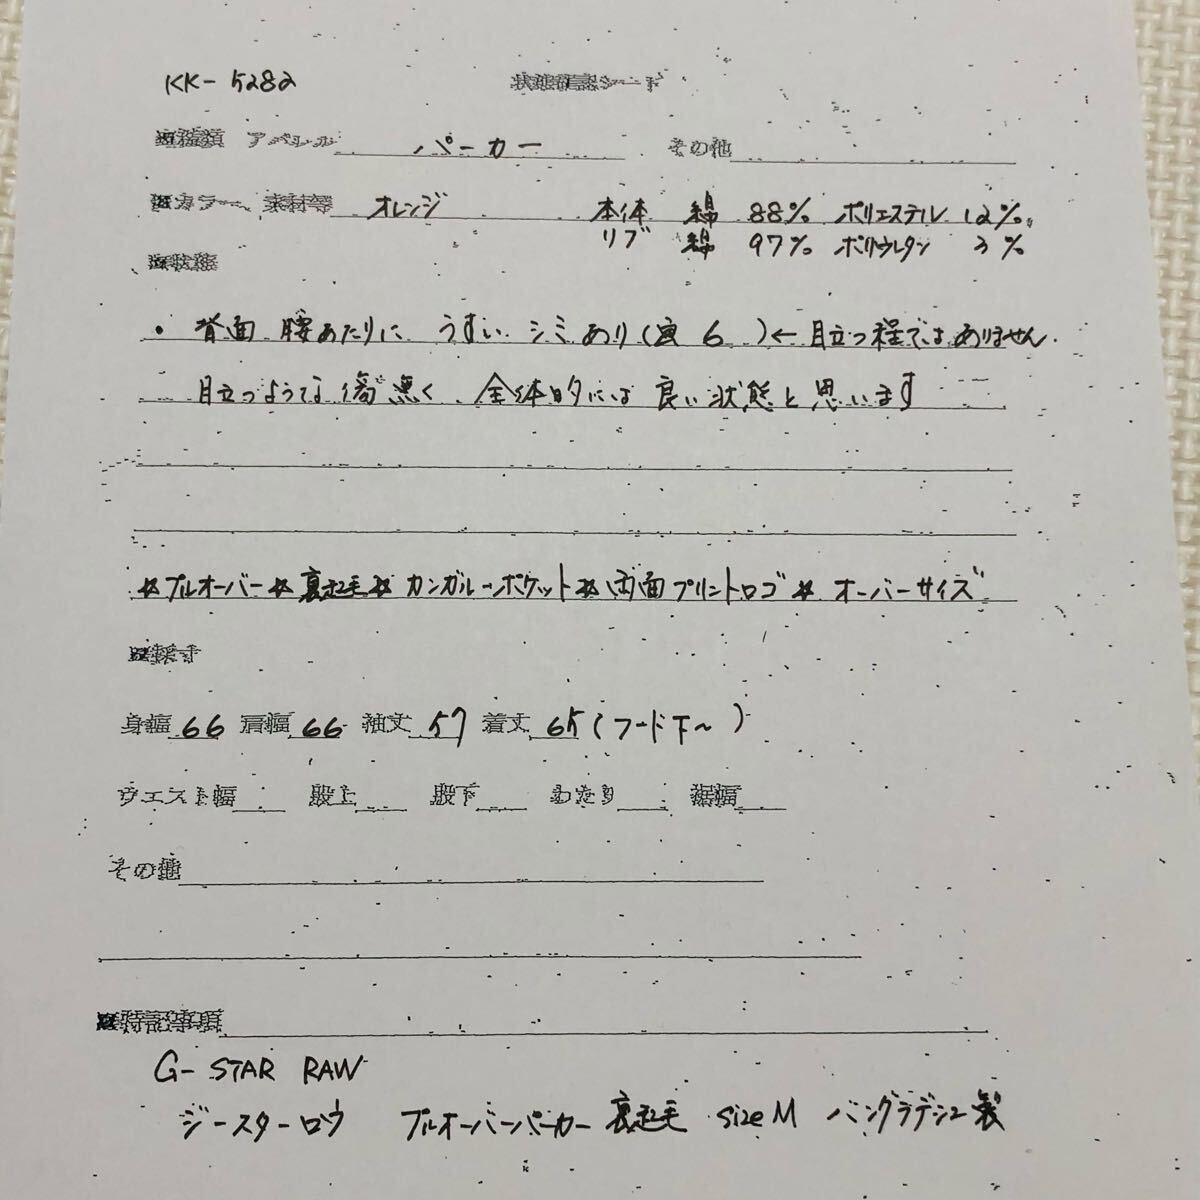 KK-5282 状態確認シート
種類 アパレル パーカー その他
カラー、素材等 オレンジ 本体 綿 88% ポリエステル 12%.
リブ 綿 97% ポリウレタン 3%
状態
・背面 腰あたりに うすい シミあり ( 6 ) ← 目立つ程ではありません.
目立つような傷無く 全体的には 良い状態と思います
☆プルオーバー☆裏起毛☆カンガルーポケット☆両面プリントロゴ☆オーバーサイズ
採寸
身幅 66 肩幅 66 袖丈 57 着丈 65 (フード下〜)
ウエスト幅 股上 股下 わたり 裾幅
その他
特記事項
G-STAR RAW
ジースターロウ プルオーバーパーカー 裏起毛 size M バングラデシュ製